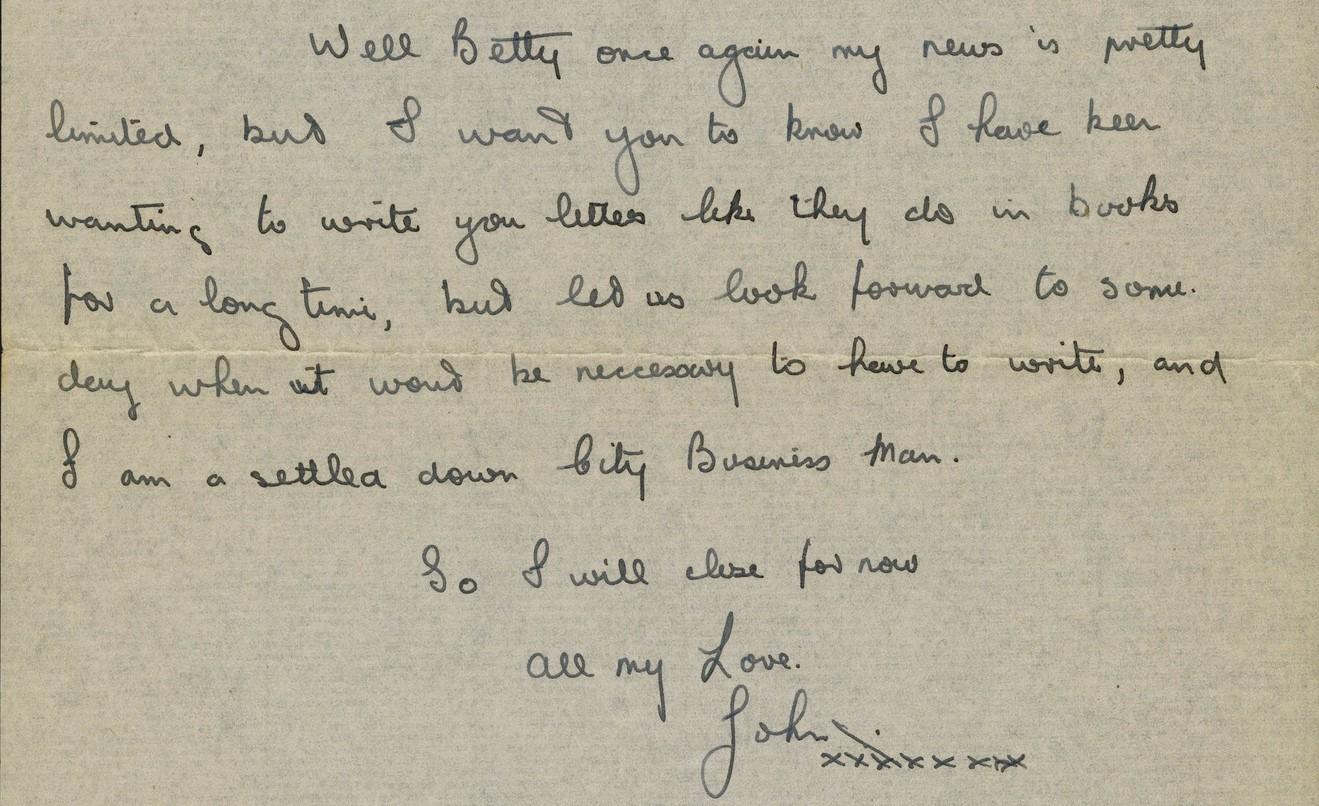 Well Betty once again my news is pretty
limited, but I want you to know I have been
wanting to write you letters like they do in books
for a long time, but let us look forward to some.
day when it wont be neccessary to have to write, and
I am a settled down City Business Man.
So I will close for now
All my Love.
John
xxxxxxxxx